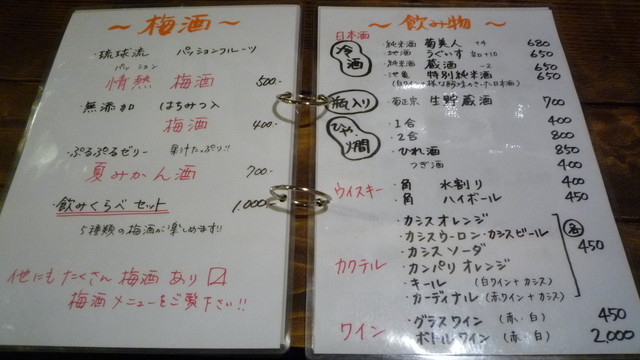 ～梅酒～
・琉球流 パッションフルーツ
パッション
情熱 梅酒 500.-
・無添加 はちみつ入
梅酒 400.-
・ぷるぷるゼリー 果汁たっぷり!!
夏みかん酒 700.-
・飲みくらべセット 1,000
5種類の梅酒が楽しめます!!
他にもたくさん梅酒あり
梅酒メニューをご覧下さい!!
～飲み物～
日本酒
冷酒
・純米酒 菊美人 +4 680
・地酒 うぐいす 650
・純米酒 蔵酒 -2 650
・池亀 特別純米酒 650
(白ワインの様な酵母のきいた日本酒)
瓶入り 菊正宗 生貯蔵酒 700
ひや・燗
・1合 400
・2合 800
・ひれ酒 850
つぎ酒 400
ウイスキー ・角 水割り 400
・角 ハイボール 450
カクテル
・カシスオレンジ
・カシスウーロン・カシスビール
・カシスソーダ
・カンパリオレンジ
・キール (白ワイン+カシス)
・カーディナル (赤ワイン+カシス)
各 450
ワイン ・グラスワイン (赤・白) 450
・ボトルワイン (赤・白) 2,000